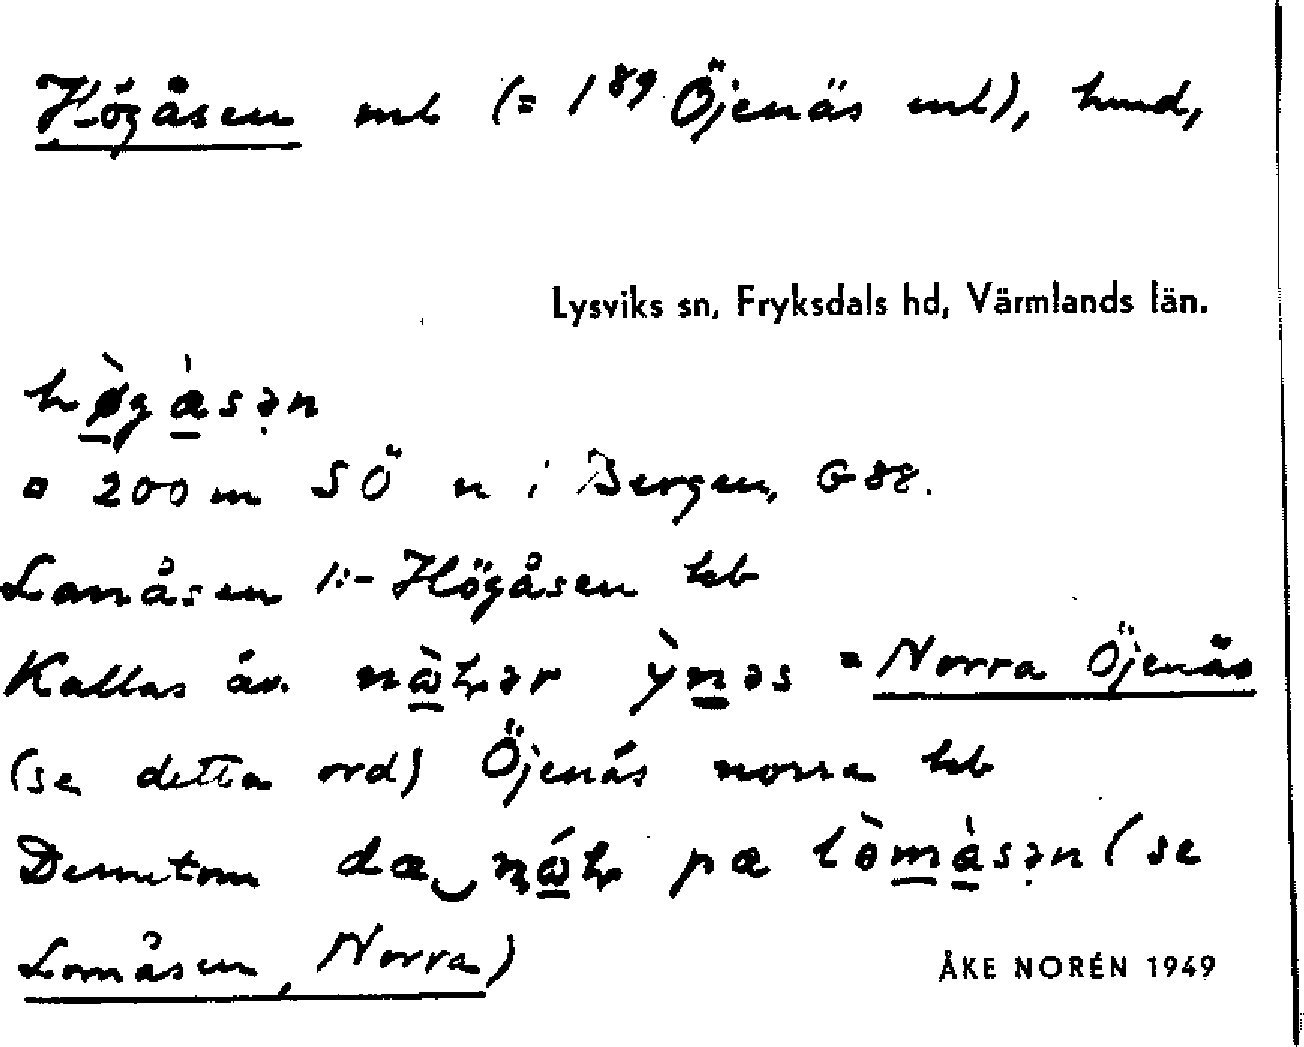 Högåsen ml (= 1⁸⁹ Öjenäs ml), hmd,
Lysviks sn, Fryksdals hd, Värmlands län.
hø̀gàsən
¤ 200 m SÖ n i Bergen, G 8e.
Lomåsen 1:- Högåsen hb
Kallas äv. ỳnəs = Norra Öjenäs
(se detta ord) Öjenäs norra hb
Dessutom pɑ lòmàsən (se
Lomåsen, Norra)
ÅKE NORÉN 1949